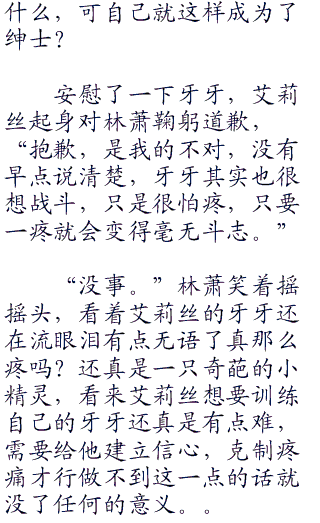 什么，可自己就这样成为了
绅士？
安慰了一下牙牙，艾莉
丝起身对林萧鞠躬道歉，
“抱歉，是我的不对，没有
早点说清楚，牙牙其实也很
想战斗，只是很怕疼，只要
一疼就会变得毫无斗志。”
“没事。”林萧笑着摇
摇头，看着艾莉丝的牙牙还
在流眼泪有点无语了真那么
疼吗？还真是一只奇葩的小
精灵，看来艾莉丝想要训练
自己的牙牙还真是有点难，
需要给他建立信心，克制疼
痛才行做不到这一点的话就
没了任何的意义。。